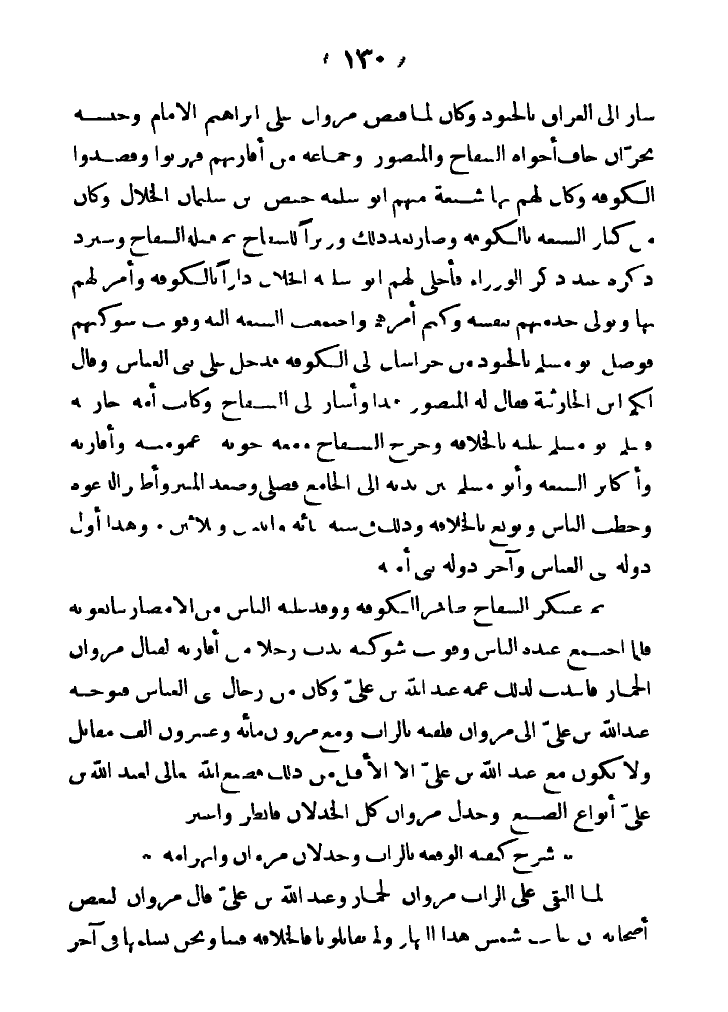 « ١٣٠ »
سار الى العراق بالجنود وكان لما قبض مروان على ابراهيم الامام وحبسه
بحرّان خاف أخواه السفاح والمنصور وجماعة من أقاربهم فهربوا وقصدوا
الكوفة وكان لهم بها شيعة منهم ابو سلمة حفص بن سليمان الخلال وكان
من كبار الشيعة بالكوفة وصار بعد ذلك وزيراً للسفاح ثم قتله السفاح وسيرد
ذكره عند ذكر الوزراء فأخلى لهم ابو سلمة الخلال داراً بالكوفة وأمر لهم
بها وتولى خدمتهم بنفسه وكتم أمرهم واجتمعت الشيعة اليه وقويت شوكتهم
فوصل ابو مسلم بالجنود من خراسان الى الكوفة فدخل على بنى العباس وقال
ايكم ابن الحارثية فقال له المنصور هذا وأشار الى السفاح وكانت أمه حارثية
فسلم ابو مسلم عليه بالخلافة وخرج السفاح ومعه اخوته وعمومته وأقاربه
وأكابر الشيعة وأبو مسلم بين يديه الى الجامع فصلى وصعد المنبر وأظهر الدعوة
وخطب الناس وبويع بالخلافة وذلك فى سنة مائة واثنتين وثلاثين . وهذا أول
دولة بنى العباس وآخر دولة بنى أمية
ثم عسكر السفاح ظاهر الكوفة ووفد عليه الناس من الامصار يبايعونه
فلما اجتمع عنده الناس وقويت شوكته ندب رجلا من أقاربه لقتال مروان
الحمار فانتدب لذلك عمه عبد الله بن علىّ وكان من رجال بنى العباس فتوجه
عبد الله بن علىّ الى مروان فلقيه بالزاب ومع مروان مائة وعشرون الف مقاتل
ولا يكون مع عبد الله بن علىّ الا الأقل من ذلك فصنع الله تعالى لعبد الله بن
علىّ أنواع الصنع وخذل مروان كل الخذلان فانظر واعتبر
« شرح كيفية الوقعة بالزاب وخذلان مروان وانهزامه »
لما التقى على الزاب مروان الحمار وعبد الله بن علىّ قال مروان لبعض
أصحابه ان غابت شمس هذا النهار ولم يقاتلونا فالخلافة فينا ونحن نسلمها فى آخر